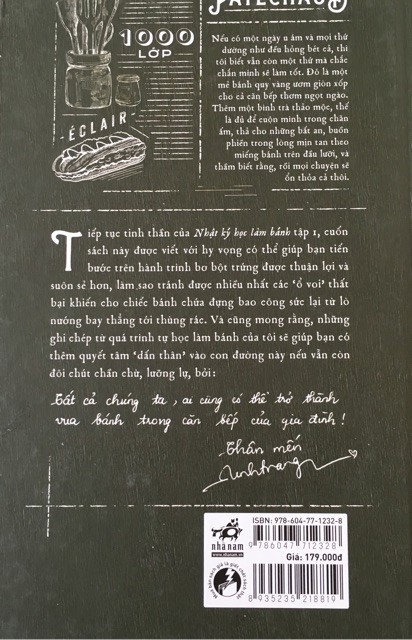 PATECHAUD
1000
LỚP
ÉCLAIR
Nếu có một ngày u ám và mọi thứ
dường như đều hỏng bét cả, thì
tôi biết vẫn còn một thứ mà chắc
chắn mình sẽ làm tốt. Đó là một
mẻ bánh quy vàng ươm giòn xốp
cho cả căn bếp thơm ngọt ngào.
Thêm một bình trà thảo mộc, thế
là đủ để cuộn mình trong chăn
ấm, thả cho những bất an, buồn
phiền trong lòng mịn tan theo
miếng bánh trên đầu lưỡi, và
thầm biết rằng, rồi mọi chuyện sẽ
ổn thỏa cả thôi.
Tiếp tục tinh thần của Nhật ký học làm bánh tập 1, cuốn
sách này được viết với hy vọng có thể giúp bạn tiến
bước trên hành trình bơ bột trứng được thuận lợi và
suôn sẻ hơn, làm sao tránh được nhiều nhất các 'ổ voi' thất
bại khiến cho chiếc bánh chứa đựng bao công sức lại từ lò
nướng bay thẳng tới thùng rác. Và cũng mong rằng, những
ghi chép từ quá trình tự học làm bánh của tôi sẽ giúp bạn có
thêm quyết tâm 'dấn thân' vào con đường này nếu vẫn còn
đôi chút chần chừ, lưỡng lự, bởi:
Tất cả chúng ta, ai cũng có thể trở thành
vua bánh trong căn bếp của gia đình!
Thân mến
Linhtrang
nhã nam
www.nhanam.vn
ISBN: 978-604-77-1232-8
9 786047 712328
Giá: 179.000đ
8 935235 218819